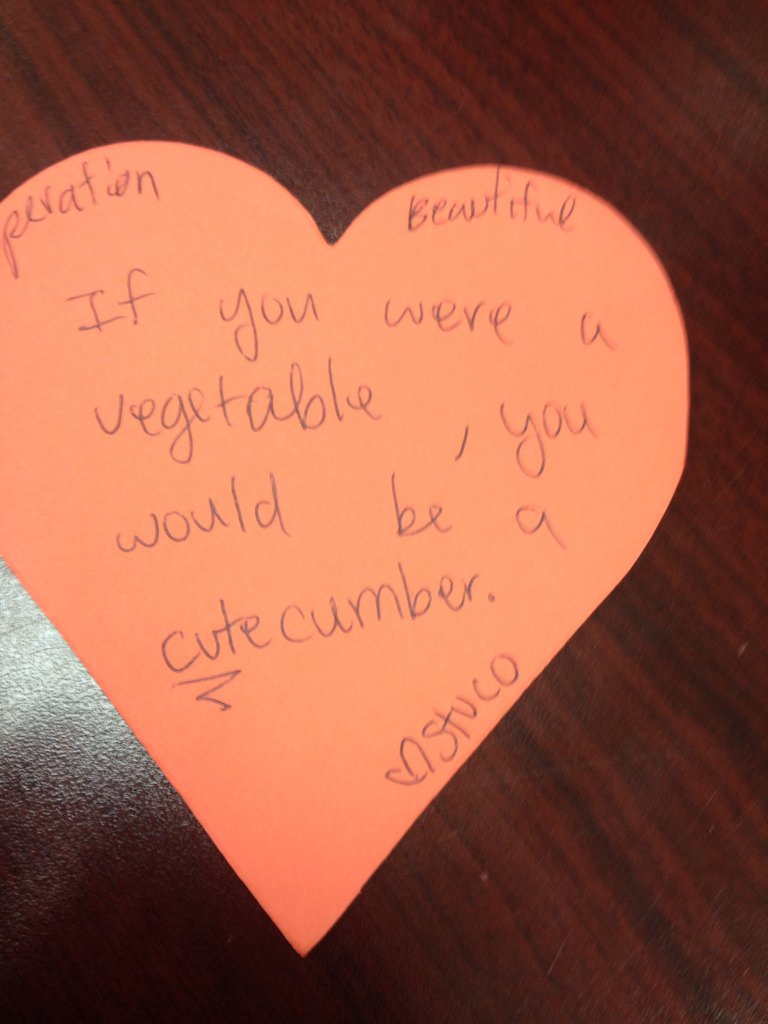 peration Beautiful
If you were a
vegetable, you
would be a
cutecumber.
♡Stuco